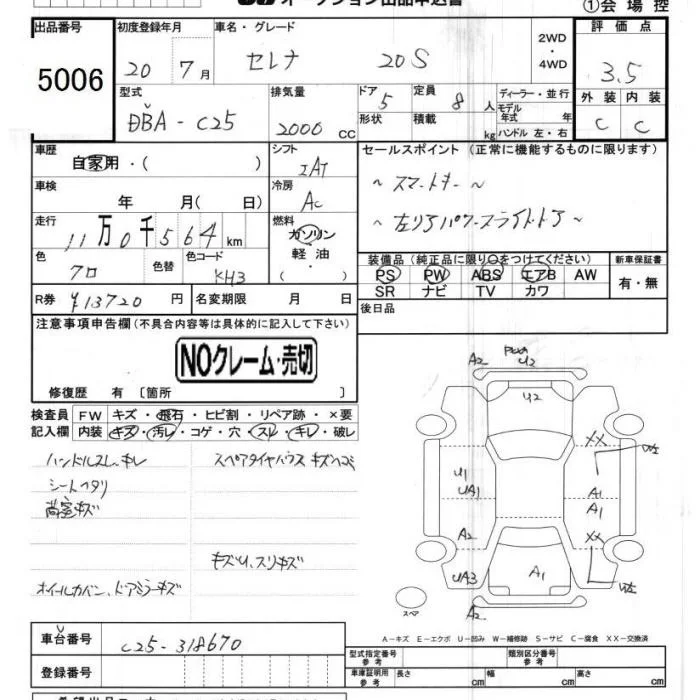 オークション出品申込書 ①会場控
出品番号 初度登録年月 車名・グレード 2WD・4WD 評価点
5006 20 7月 セレナ 20S 3.5
型式 排気量 ドア 定員 ディーラー・並行 外装 内装
DBA-C25 2000cc 5 8人 モデル年式 年 C C
形状 積載 kg ハンドル 左・右
車歴 シフト セールスポイント (正常に機能するものに限ります)
自家用・( ) IAT ~スマートキー~
車検 年 月( 日) 冷房 AC
走行 11万0千564km 燃料 ガソリン・軽油・( ) ~左リアパワースライドドア~
色 クロ 色替 色コード KH3
装備品 (純正品に限り○をつけてください) 新車保証書
PS PW ABS エアB AW 有・無
SR ナビ TV カワ
R券 ¥13720円 名変期限 月 日 後日品
注意事項申告欄 (不具合内容等は具体的に記入して下さい)
NOクレーム・売切
修復歴 有 [箇所 ]
検査員 FW キズ・飛石・ヒビ割・リペア跡・×要
記入欄 内装 キズ・汚レ・コゲ・穴・スレ・キレ・破レ
ハンドルスレ、キレ スペアタイヤハウスキズヘコミ
シートヘタリ
荷室キズ
キズU、スリキズ
ホイールカバー、ドアミラーキズ
A2 U2
U2
XX
U1
UA1 A1
A1
A2 XX
UA3 A1
A2
スペア
A-キズ E-エクボ U-凹み W-補修跡 S-サビ C-腐食 XX-交換済
車台番号 C25-318670 型式指定番号 参考 類別区分番号 参考
登録番号 車庫証明用 参考 長さ cm 幅 cm 高さ cm